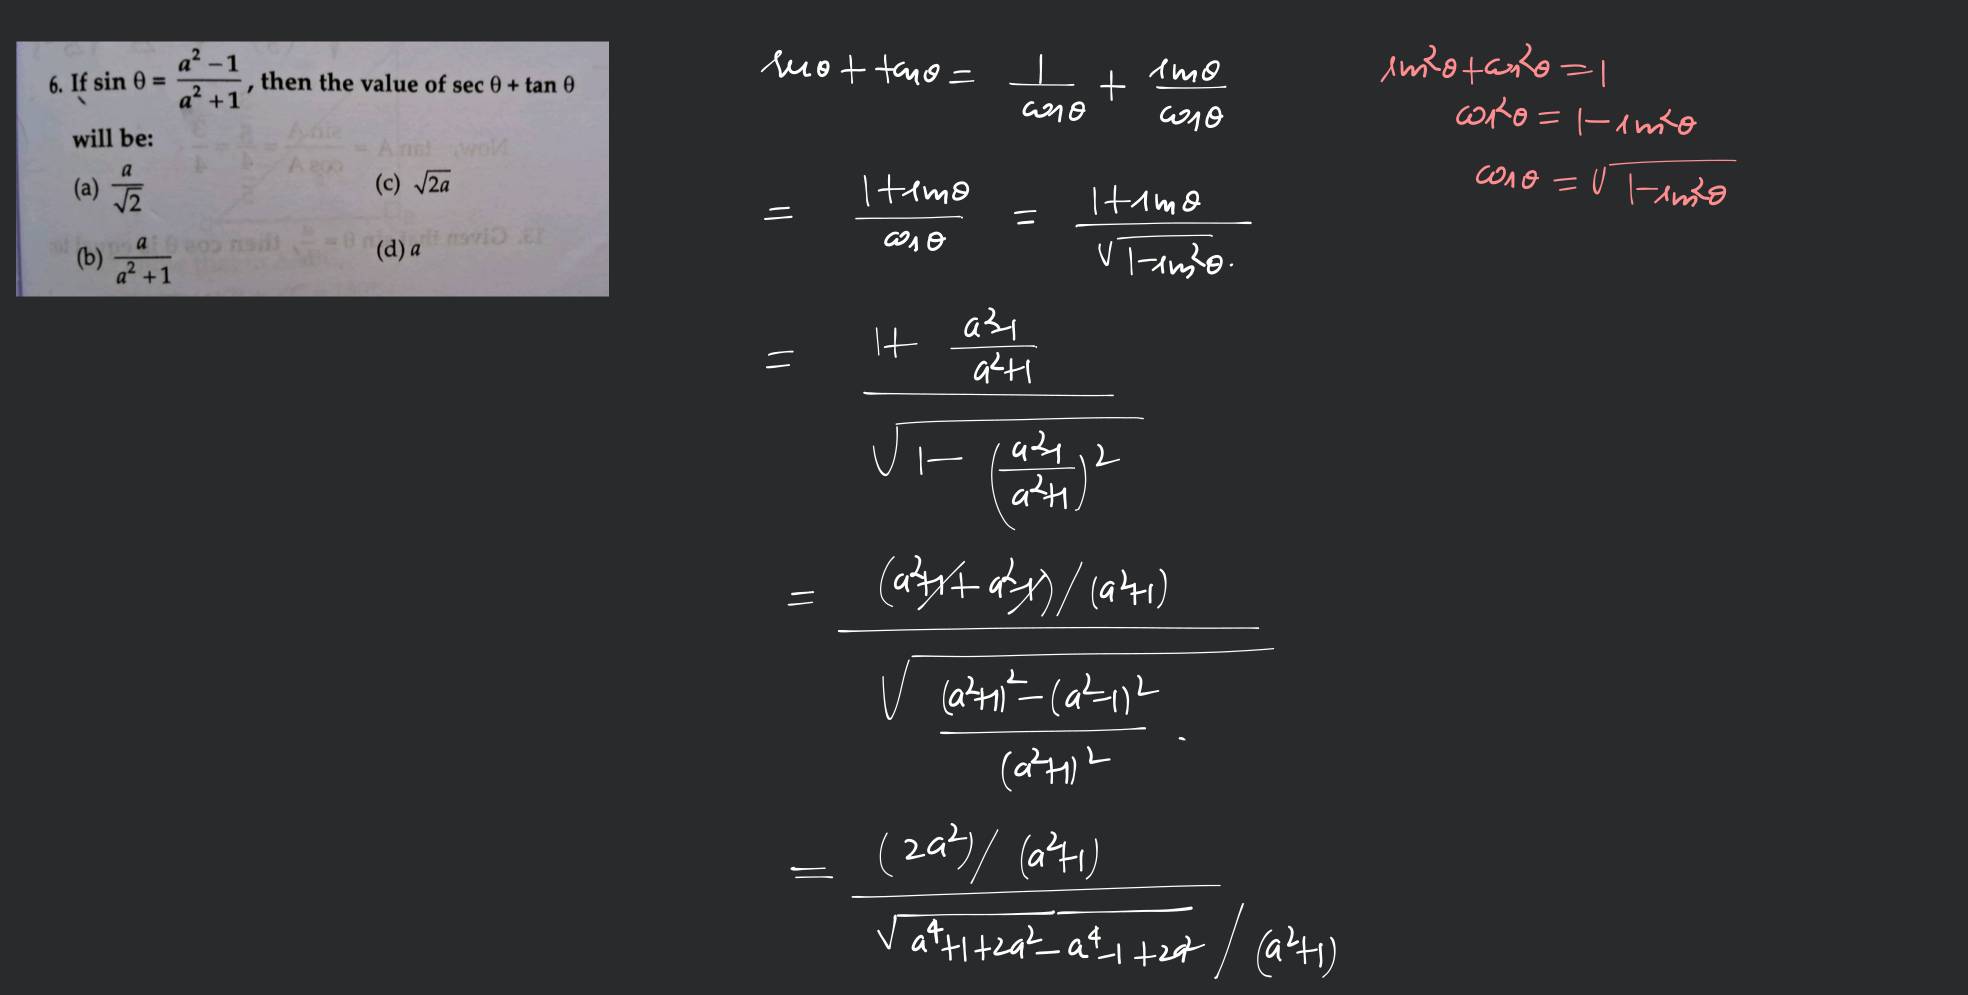 6. If sin θ = (a² − 1)/(a² + 1), then the value of sec θ + tan θ
will be:
(a) a/√2 (c) √2a
(b) a/(a² + 1) (d) a
secθ + tanθ = 1/cosθ + sinθ/cosθ
= (1+sinθ)/cosθ = (1+sinθ)/√(1−sin²θ).
= (1 + (a²−1)/(a²+1)) / √(1 − ((a²−1)/(a²+1))²)
= ((a²+1+a²−1)/(a²+1)) / √(((a²+1)²−(a²−1)²)/(a²+1)²) .
= ((2a²)/(a²+1)) / (√(a⁴+1+2a²−a⁴−1+2a²)/(a²+1))
sin²θ+cos²θ=1
cos²θ = 1−sin²θ
cosθ = √(1−sin²θ)